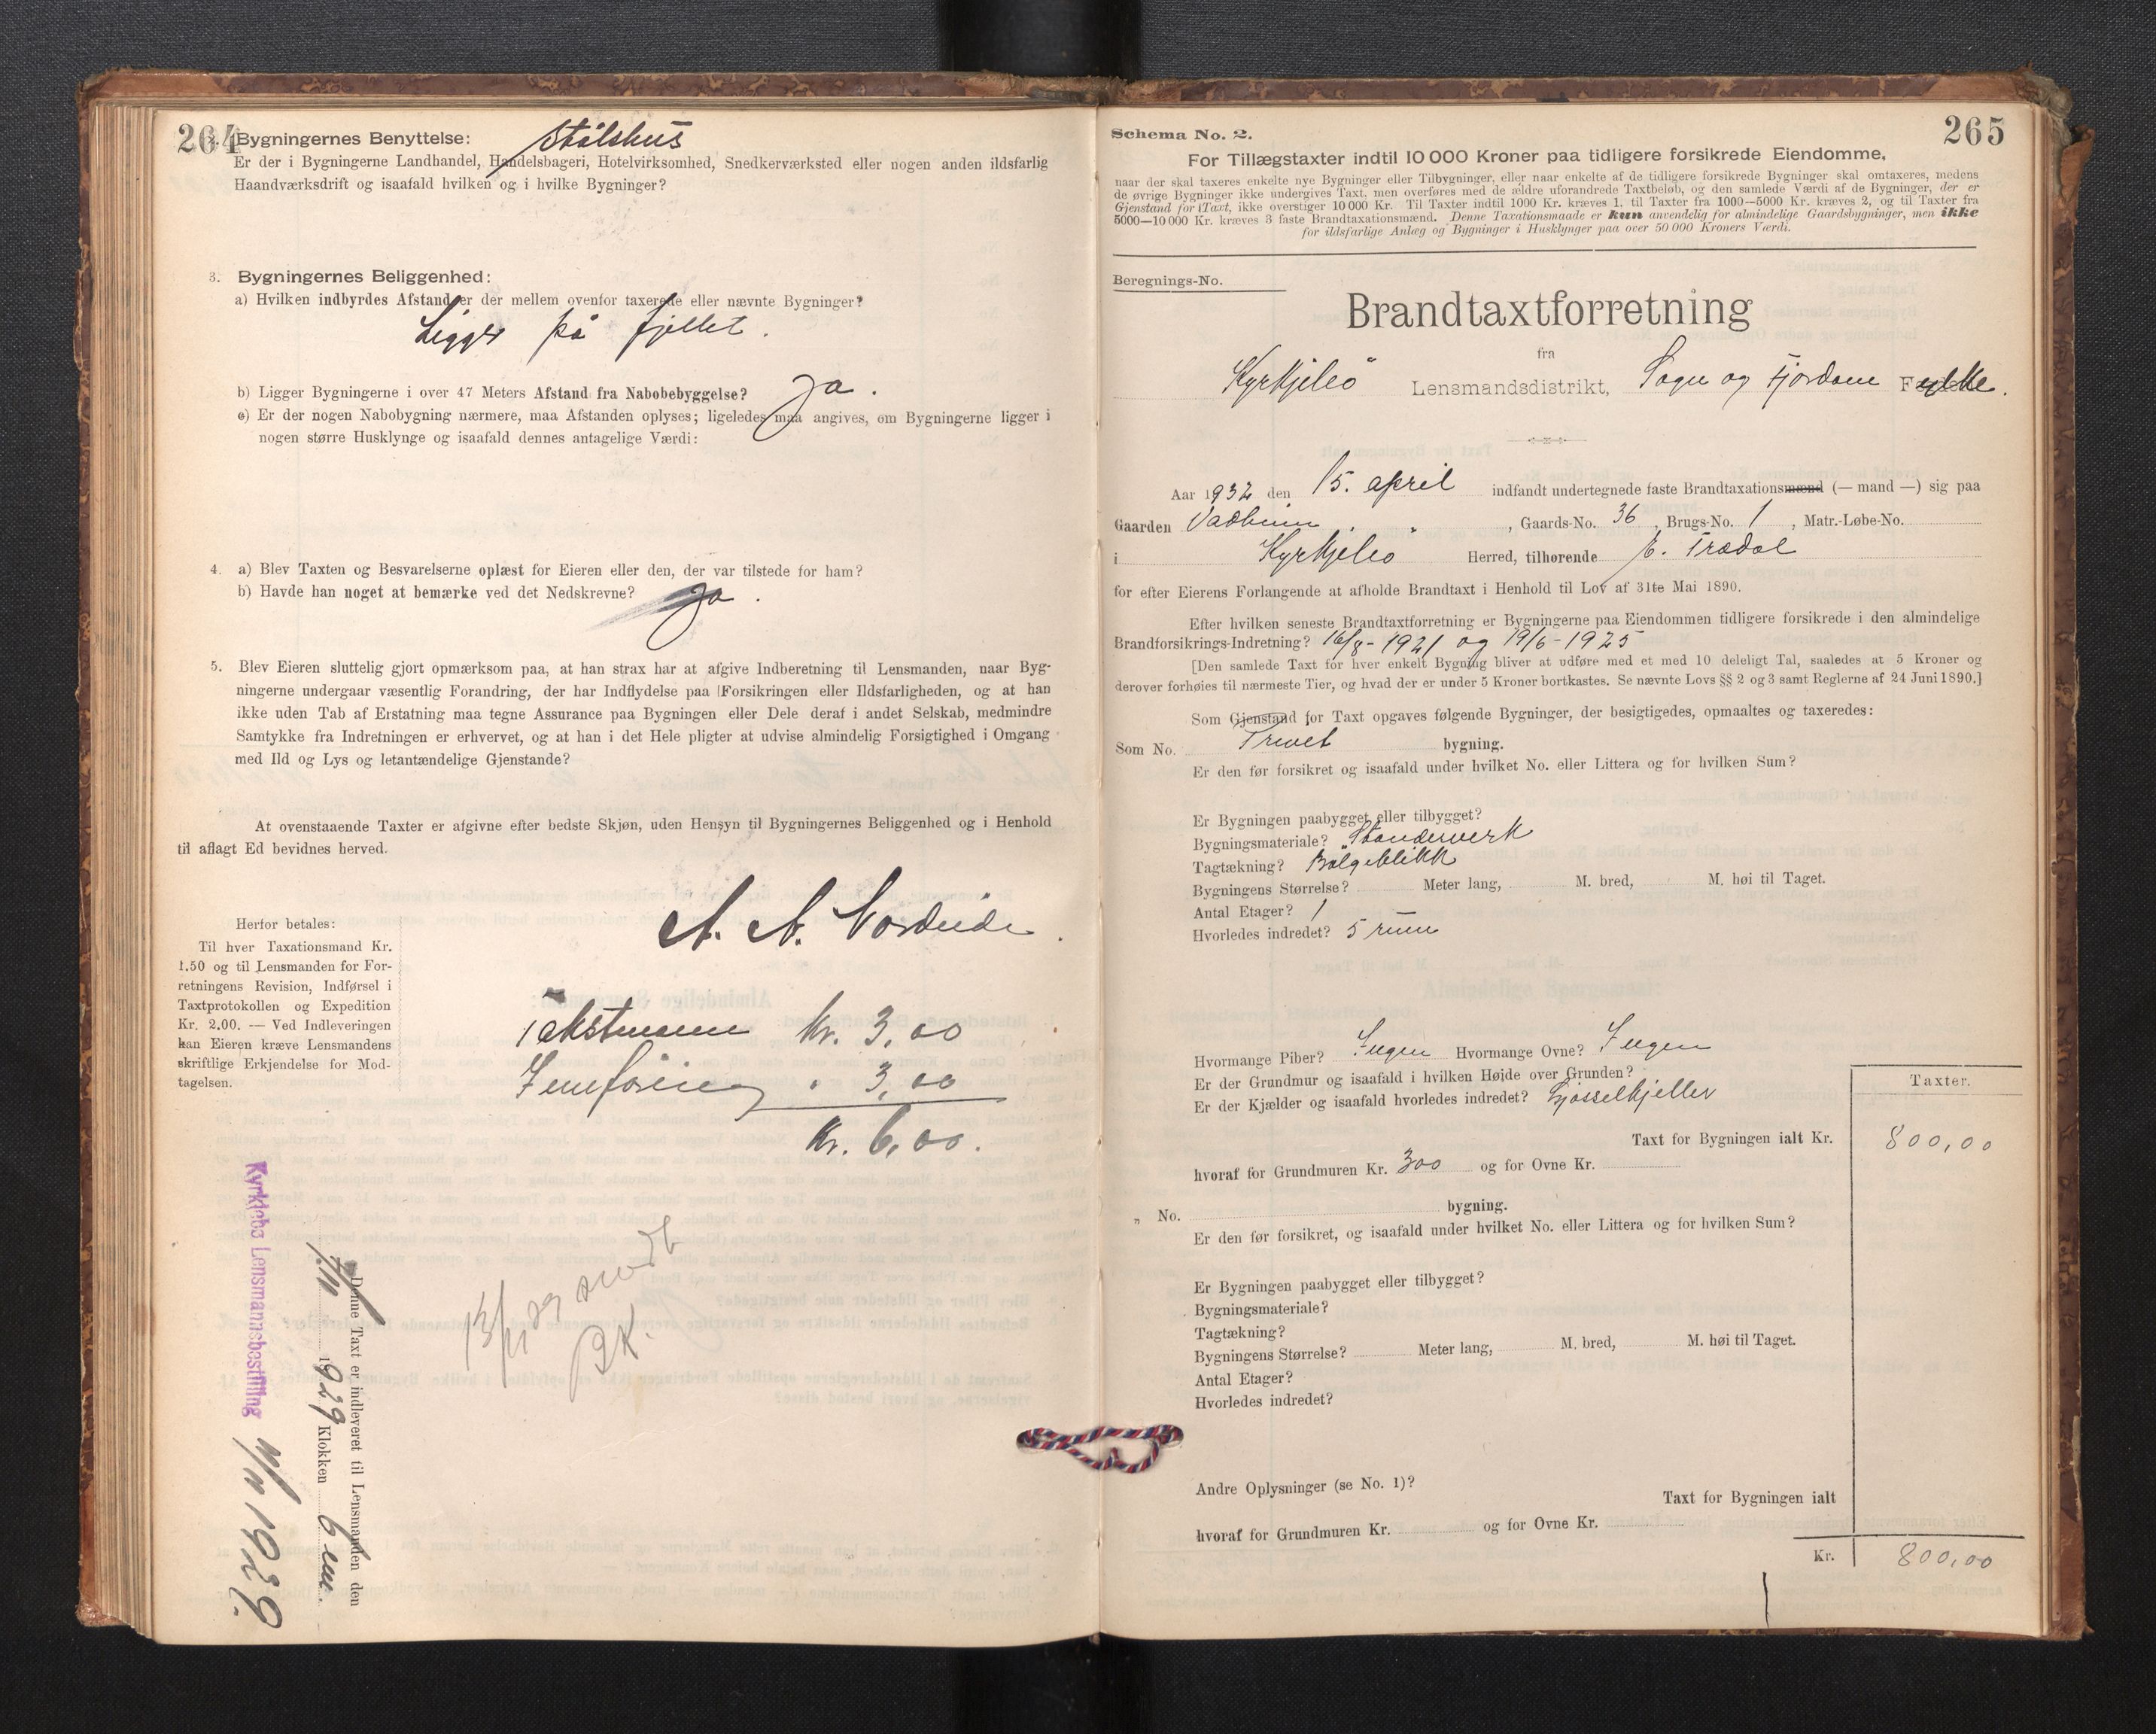 264
2. Bygningernes Benyttelse: Stølshus
Er der i Bygningerne Landhandel, Handelsbageri, Hotelvirksomhed, Snedkerværksted eller nogen anden ildsfarlig
Haandværksdrift og isaafald hvilken og i hvilke Bygninger?
3. Bygningernes Beliggenhed:
a) Hvilken indbyrdes Afstand er der mellem ovenfor taxerede eller nævnte Bygninger?
Ligger på fjellet.
b) Ligger Bygningerne i over 47 Meters Afstand fra Nabobebyggelse? Ja.
c) Er der nogen Nabobygning nærmere, maa Afstanden oplyses; ligeledes maa angives, om Bygningerne ligger i
nogen større Husklynge og isaafald dennes antagelige Værdi:
4. a) Blev Taxten og Besvarelserne oplæst for Eieren eller den, der var tilstede for ham?
b) Havde han noget at bemærke ved det Nedskrevne? Ja.
5. Blev Eieren sluttelig gjort opmærksom paa, at han strax har at afgive Indberetning til Lensmanden, naar Byg-
ningerne undergaar væsentlig Forandring, der har Indflydelse paa Forsikringen eller Ildsfarligheden, og at han
ikke uden Tab af Erstatning maa tegne Assurance paa Bygningen eller Dele deraf i andet Selskab, medmindre
Samtykke fra Indretningen er erhvervet, og at han i det Hele pligter at udvise almindelig Forsigtighed i Omgang
med Ild og Lys og letantændelige Gjenstande?
At ovenstaaende Taxter er afgivne efter bedste Skjøn, uden Hensyn til Bygningernes Beliggenhed og i Henhold
til aflagt Ed bevidnes herved.
A. A. Nordeide.
Herfor betales:
Til hver Taxationsmand Kr.
1.50 og til Lensmanden for For-
retningens Revision, Indførsel i
Taxtprotokollen og Expedition
Kr. 2.00. — Ved Indleveringen
kan Eieren kræve Lensmandens
skriftlige Erkjendelse for Mod-
tagelsen.
Takstmann Kr. 3,00
Innføring " 3,00
Kr. 6,00.
13/11 29 sendt
Denne Taxt er indleveret til Lensmanden den
1929 Klokken 6 em.
Kyrkjebø Lensmannsbestilling
1929.
265
Schema No. 2.
For Tillægstaxter indtil 10 000 Kroner paa tidligere forsikrede Eiendomme,
naar der skal taxeres enkelte nye Bygninger eller Tilbygninger, eller naar enkelte af de tidligere forsikrede Bygninger skal omtaxeres, medens
de øvrige Bygninger ikke undergives Taxt, men overføres med de ældre uforandrede Taxtbeløb, og den samlede Værdi af de Bygninger, der er
Gjenstand for Taxt, ikke overstiger 10 000 Kr. Til Taxter indtil 1000 Kr. kræves 1, til Taxter fra 1000—5000 Kr. kræves 2, og til Taxter fra
5000—10 000 Kr. kræves 3 faste Brandtaxationsmænd. Denne Taxationsmaade er kun anvendelig for almindelige Gaardsbygninger, men ikke
for ildsfarlige Anlæg og Bygninger i Husklynger paa over 50 000 Kroners Værdi.
Beregnings-No.
Brandtaxtforretning
fra
Kyrkjebø Lensmandsdistrikt, Sogn og Fjordane Fylke.
Aar 1932 den 15. april indfandt undertegnede faste Brandtaxationsmænd (— mand —) sig paa
Gaarden Vadheim, Gaards-No. 36, Brugs-No. 1, Matr.-Løbe-No.
i Kyrkjebø Herred, tilhørende E. Trædal
for efter Eierens Forlangende at afholde Brandtaxt i Henhold til Lov af 31te Mai 1890.
Efter hvilken seneste Brandtaxtforretning er Bygningerne paa Eiendommen tidligere forsikrede i den almindelige
Brandforsikrings-Indretning? 16/8-1921 og 19/6-1925
[Den samlede Taxt for hver enkelt Bygning bliver at udføre med et med 10 deleligt Tal, saaledes at 5 Kroner og
derover forhøies til nærmeste Tier, og hvad der er under 5 Kroner bortkastes. Se nævnte Lovs §§ 2 og 3 samt Reglerne af 24 Juni 1890.]
Som Gjenstand for Taxt opgaves følgende Bygninger, der besigtigedes, opmaaltes og taxeredes:
Som No. bygning.
Er den før forsikret og isaafald under hvilket No. eller Littera og for hvilken Sum?
Er Bygningen paabygget eller tilbygget?
Bygningsmateriale? Stenderverk
Tagtækning? Bølgeblikk
Bygningens Størrelse? Meter lang, M. bred, M. høi til Taget.
Antal Etager? 1
Hvorledes indredet? 5 rum
Hvormange Piber? Ingen Hvormange Ovne? Ingen
Er der Grundmur og isaafald i hvilken Højde over Grunden?
Er der Kjælder og isaafald hvorledes indredet? Gjødselkjeller
Taxter.
Taxt for Bygningen ialt Kr. 800,00
hvoraf for Grundmuren Kr. 300 og for Ovne Kr.
„ No. bygning.
Er den før forsikret, og isaafald under hvilket No. eller Littera og for hvilken Sum?
Er Bygningen paabygget eller tilbygget?
Bygningsmateriale?
Tagtækning?
Bygningens Størrelse? Meter lang, M. bred, M. høi til Taget.
Antal Etager?
Hvorledes indredet?
Andre Oplysninger (se No. 1)?
Taxt for Bygningen ialt
hvoraf for Grundmuren Kr. og for Ovne Kr.
Kr. 800,00